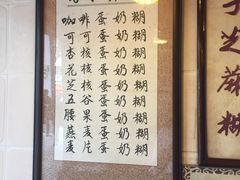 咖啡蛋奶糊
可可蛋奶糊
杏蛋奶糊
花蛋奶糊
芝蛋奶糊
五谷蛋奶糊
腰果蛋奶糊
燕麦蛋奶糊
麦片蛋奶糊
芝麻糊